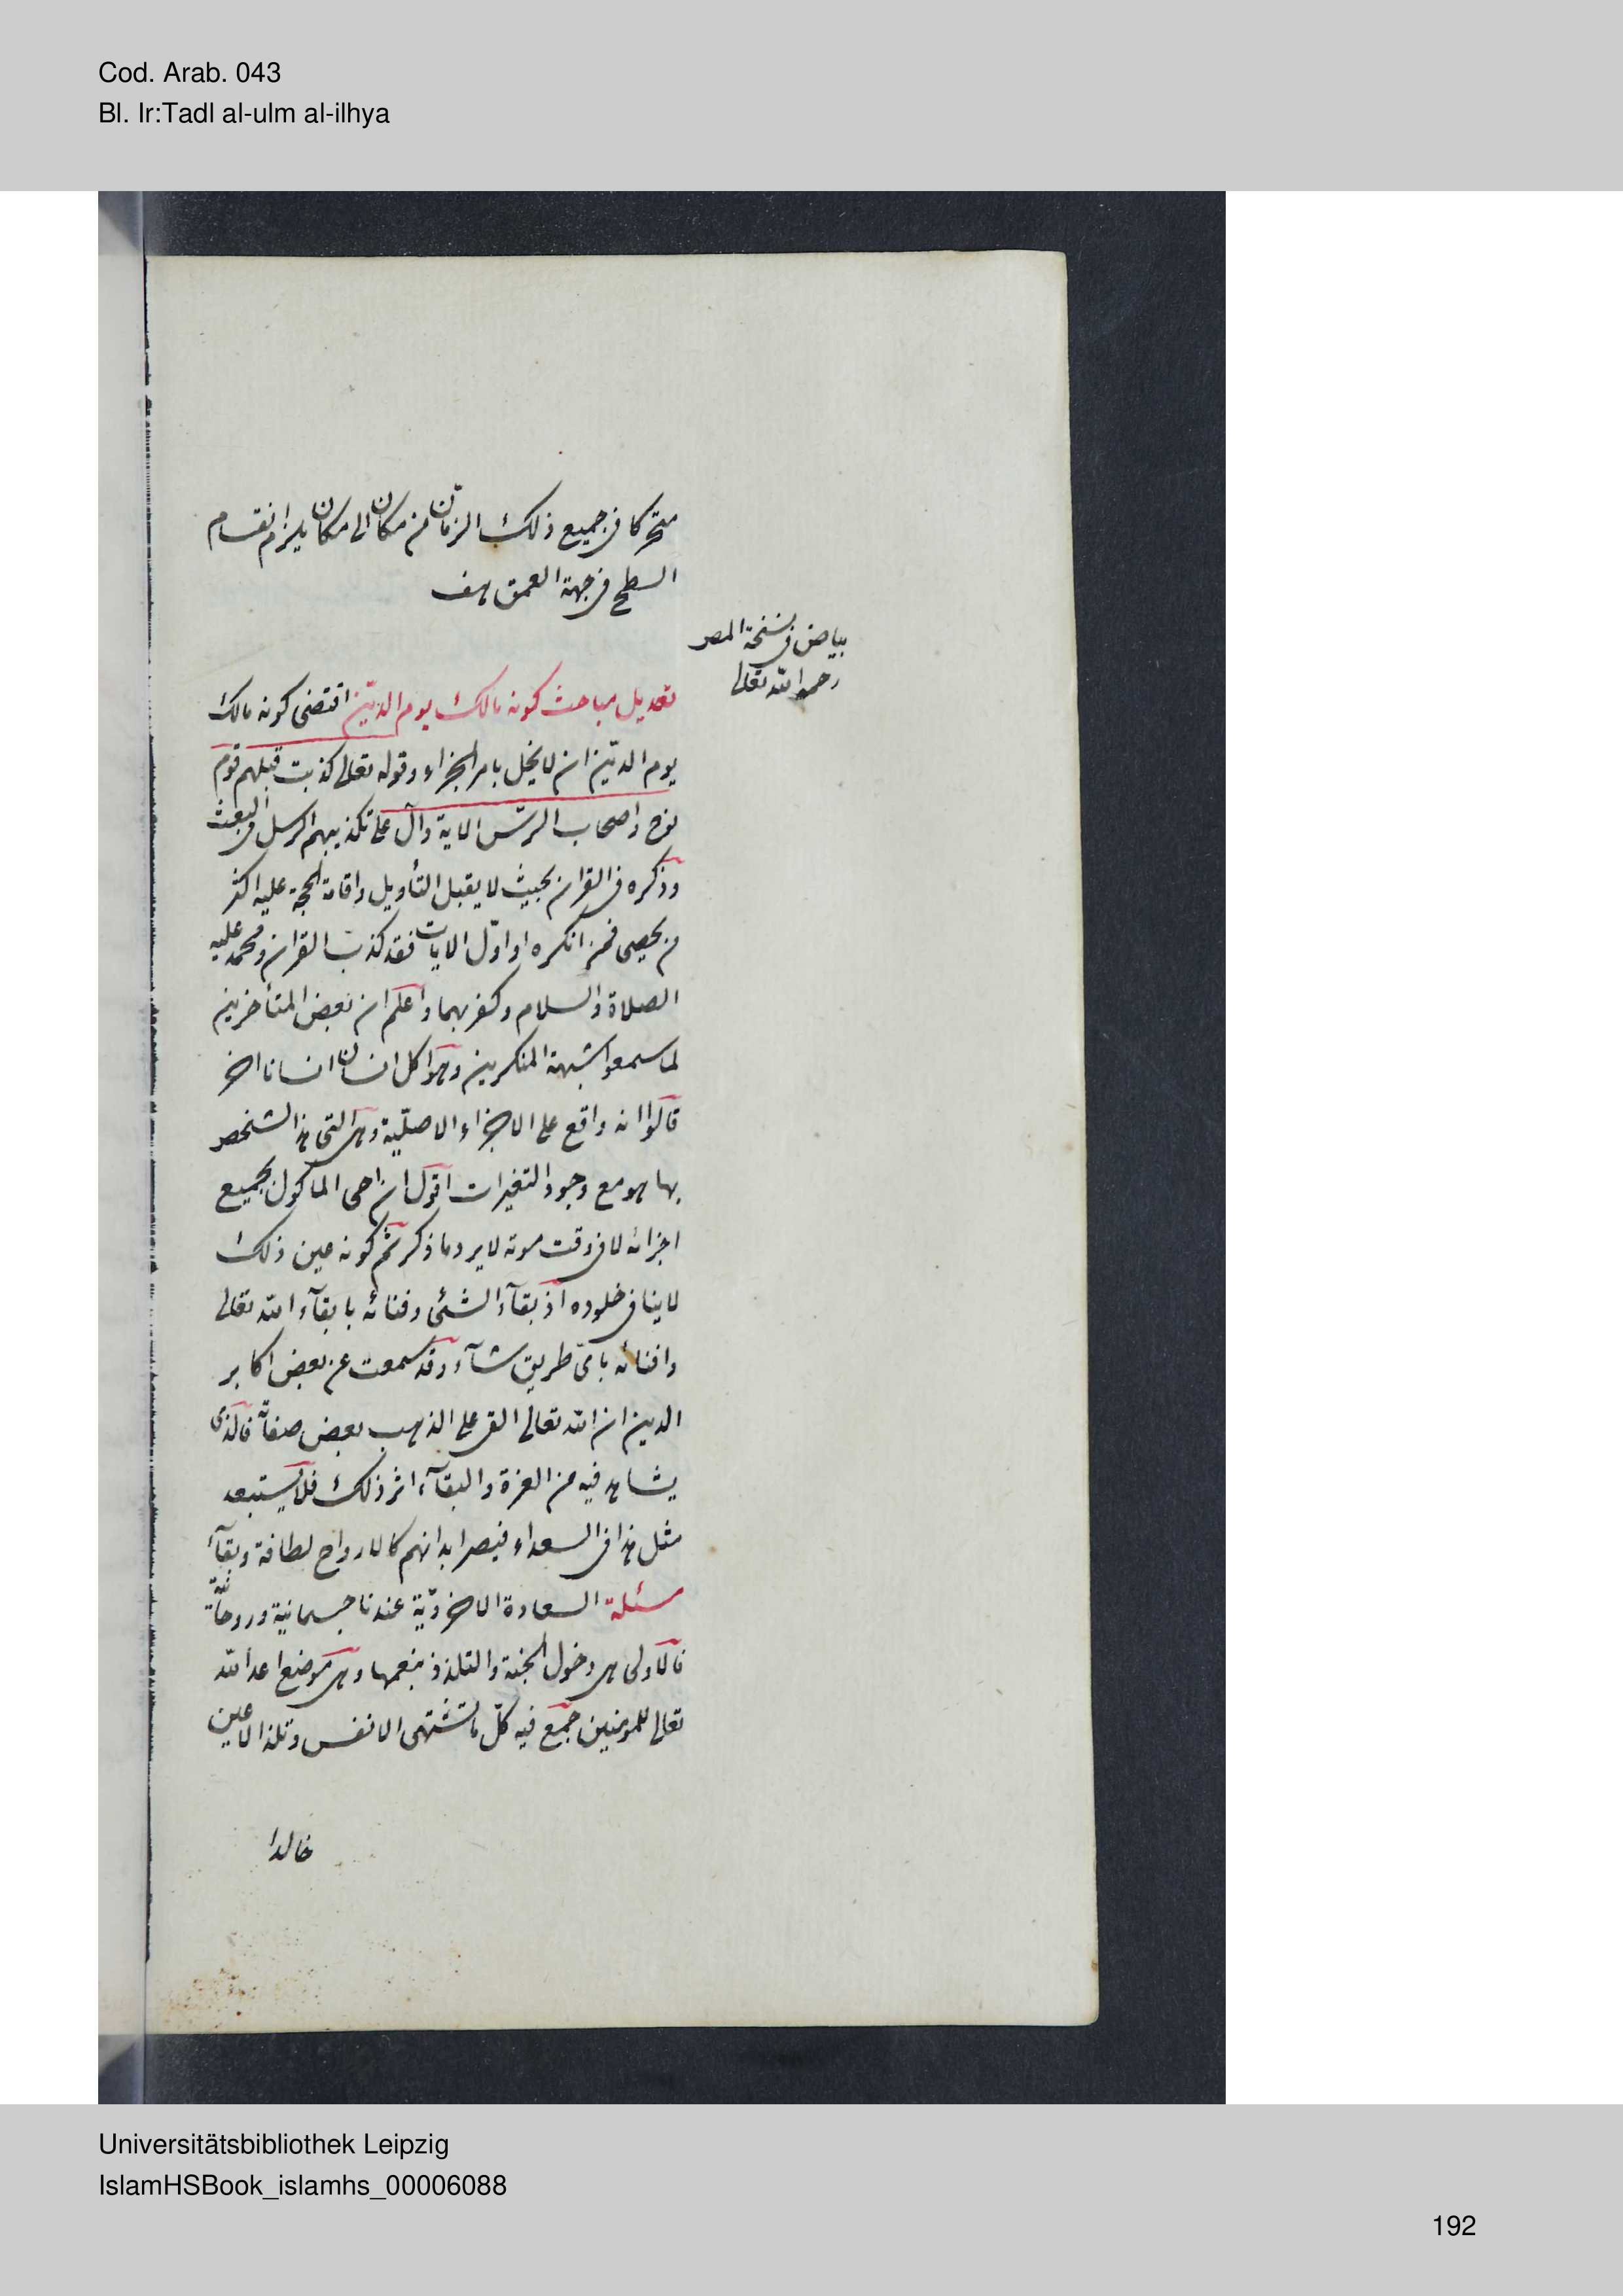 Cod. Arab. 043
Bl. Ir:Tadl al-ulm al-ilhya
متحركا فى جميع ذلك الزمان من مكان الى مكان يلزم انقسام
السطح فى جهة العمق هف
بياض فى نسخة المص
رحمه الله تعالى
تعديل مباحث كونه مالك يوم الدّين اقتضى كونه مالك
يوم الدّين ان لا يخل بامر الجزاء وقوله تعالى كذبت قبلهم قوم
نوح واصحاب الرسّ الاية دالّ على تكذيبهم الرسل فى البعث
وذكره فى القران بحيث لا يقبل التأويل واقامة الحجة عليه اكثر
من يحصى فمن انكره او اوّل الايات فقد كذب القران ومحمد عليه
الصلاة والسلام وكفر بهما واعلم ان بعض المتأخرين
لما سمعوا شبهة المنكرين وهو اكل انسان انسانا اخر
قالوا انه واقع على الاجزاء الاصلّية وهى التى هذا الشخص
بها هو مع وجود التغيرات اقول ان احى الماكول بجميع
اجزائه لا فى وقت موته لا يرد ما ذكر ثم كونه عين ذلك
لا ينافى خلوده اذ بقآء الشئ وفنائه بابقآء الله تعالى
وافنائه باىّ طريق شآء وقد سمعت عن بعض اكابر
الدين ان الله تعالى القى على الذهب بعض صفاته فالذى
يشاهد فيه من العزة والبقآء اثر ذلك فلا يستبعد
مثل هذا فى السعداء فيصر ابدانهم كالارواح لطافة وبقآء
مسئلة السعادة الاخرويّة عندنا جسمانية وروحانيّة
فالاولى هى دخول الجنة والتلذذ بنعمها وهى موضع اعد الله
تعالى للمومنين جمع فيه كلّ ما تشتهى الانفس وتلذ الاعين
خالدا
Universitätsbibliothek Leipzig
IslamHSBook_islamhs_00006088
192